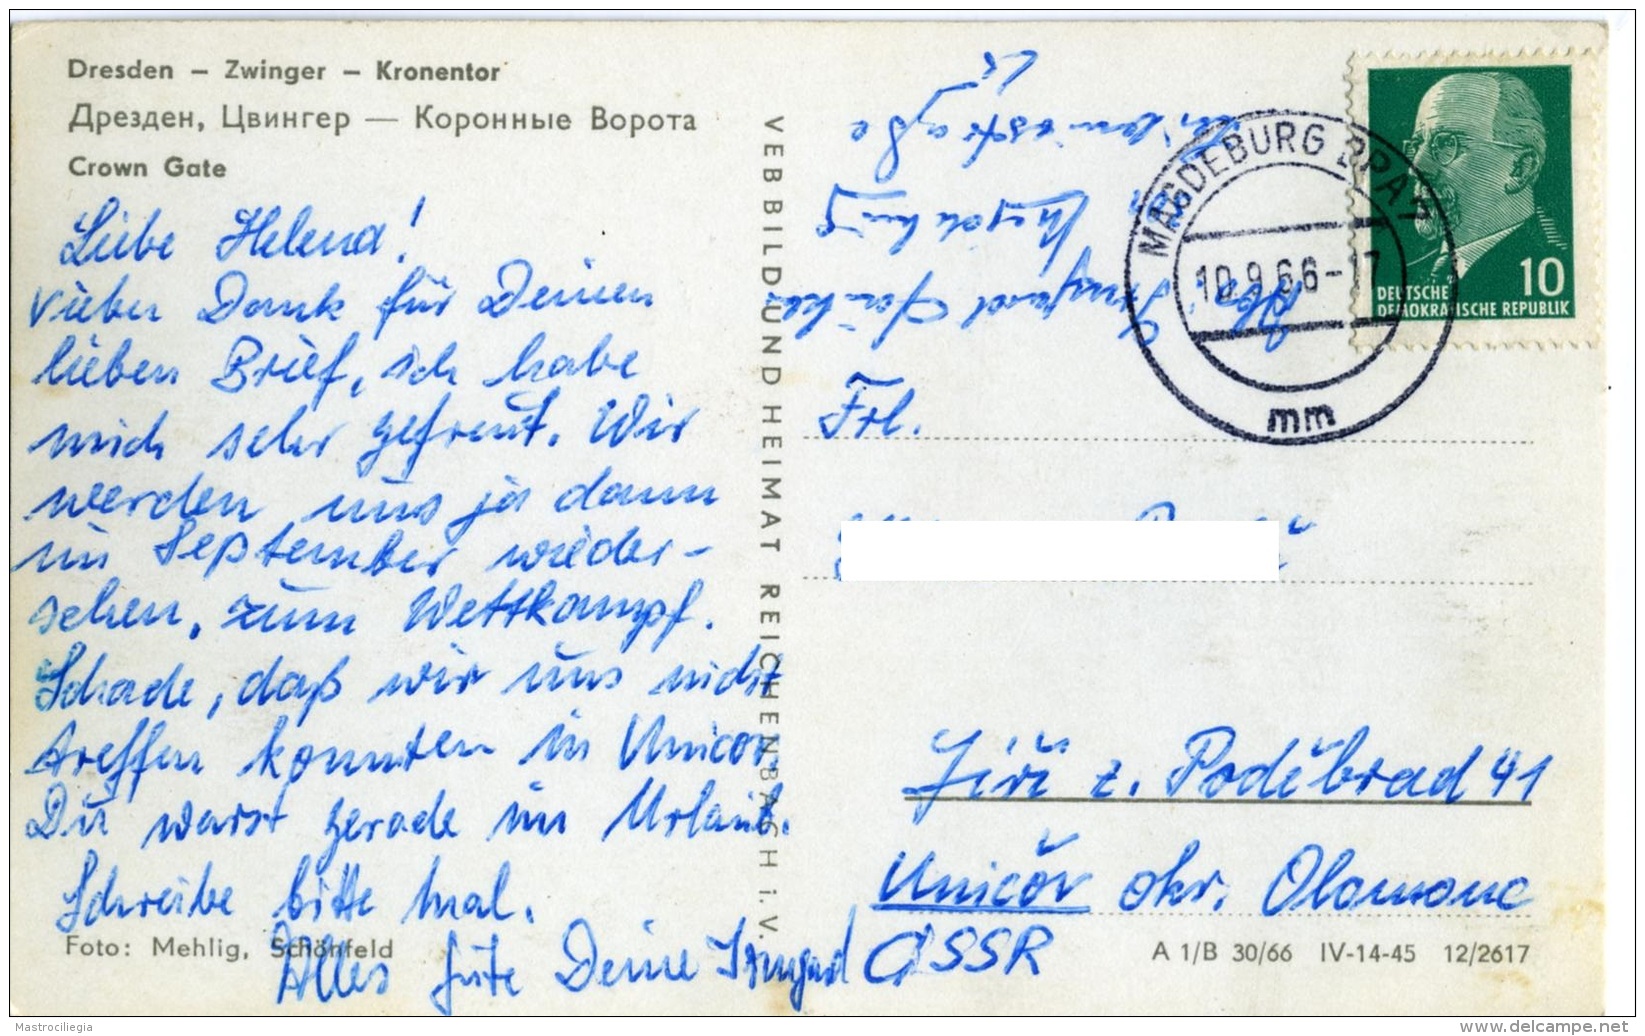 Dresden – Zwinger – Kronentor
Дрезден, Цвингер — Коронные Ворота
Crown Gate
Liebe Helena!
Vielen Dank für Deinen
lieben Brief, ich habe
mich sehr gefreut. Wir
werden uns ja dann
im September wieder-
sehen, zum Wettkampf.
Schade, daß wir uns nicht
treffen konnten in Unicov.
Du warst gerade im Urlaub.
Schreibe bitte mal.
Alles gute Deine Irmgard
Foto: Mehlig, Schönfeld
VEB BILD UND HEIMAT REICHENBACH i. V.
Abs. Irmgard
Magdeburg
MAGDEBURG BPA
10.9.66-17
mm
10
DEUTSCHE
DEMOKRATISCHE REPUBLIK
Frl.
Jiří z. Poděbrad 41
Unicŏv okr. Olomouc
ČSSR
A 1/B 30/66 IV-14-45 12/2617
Mastrociliegia
www.delcampe.net